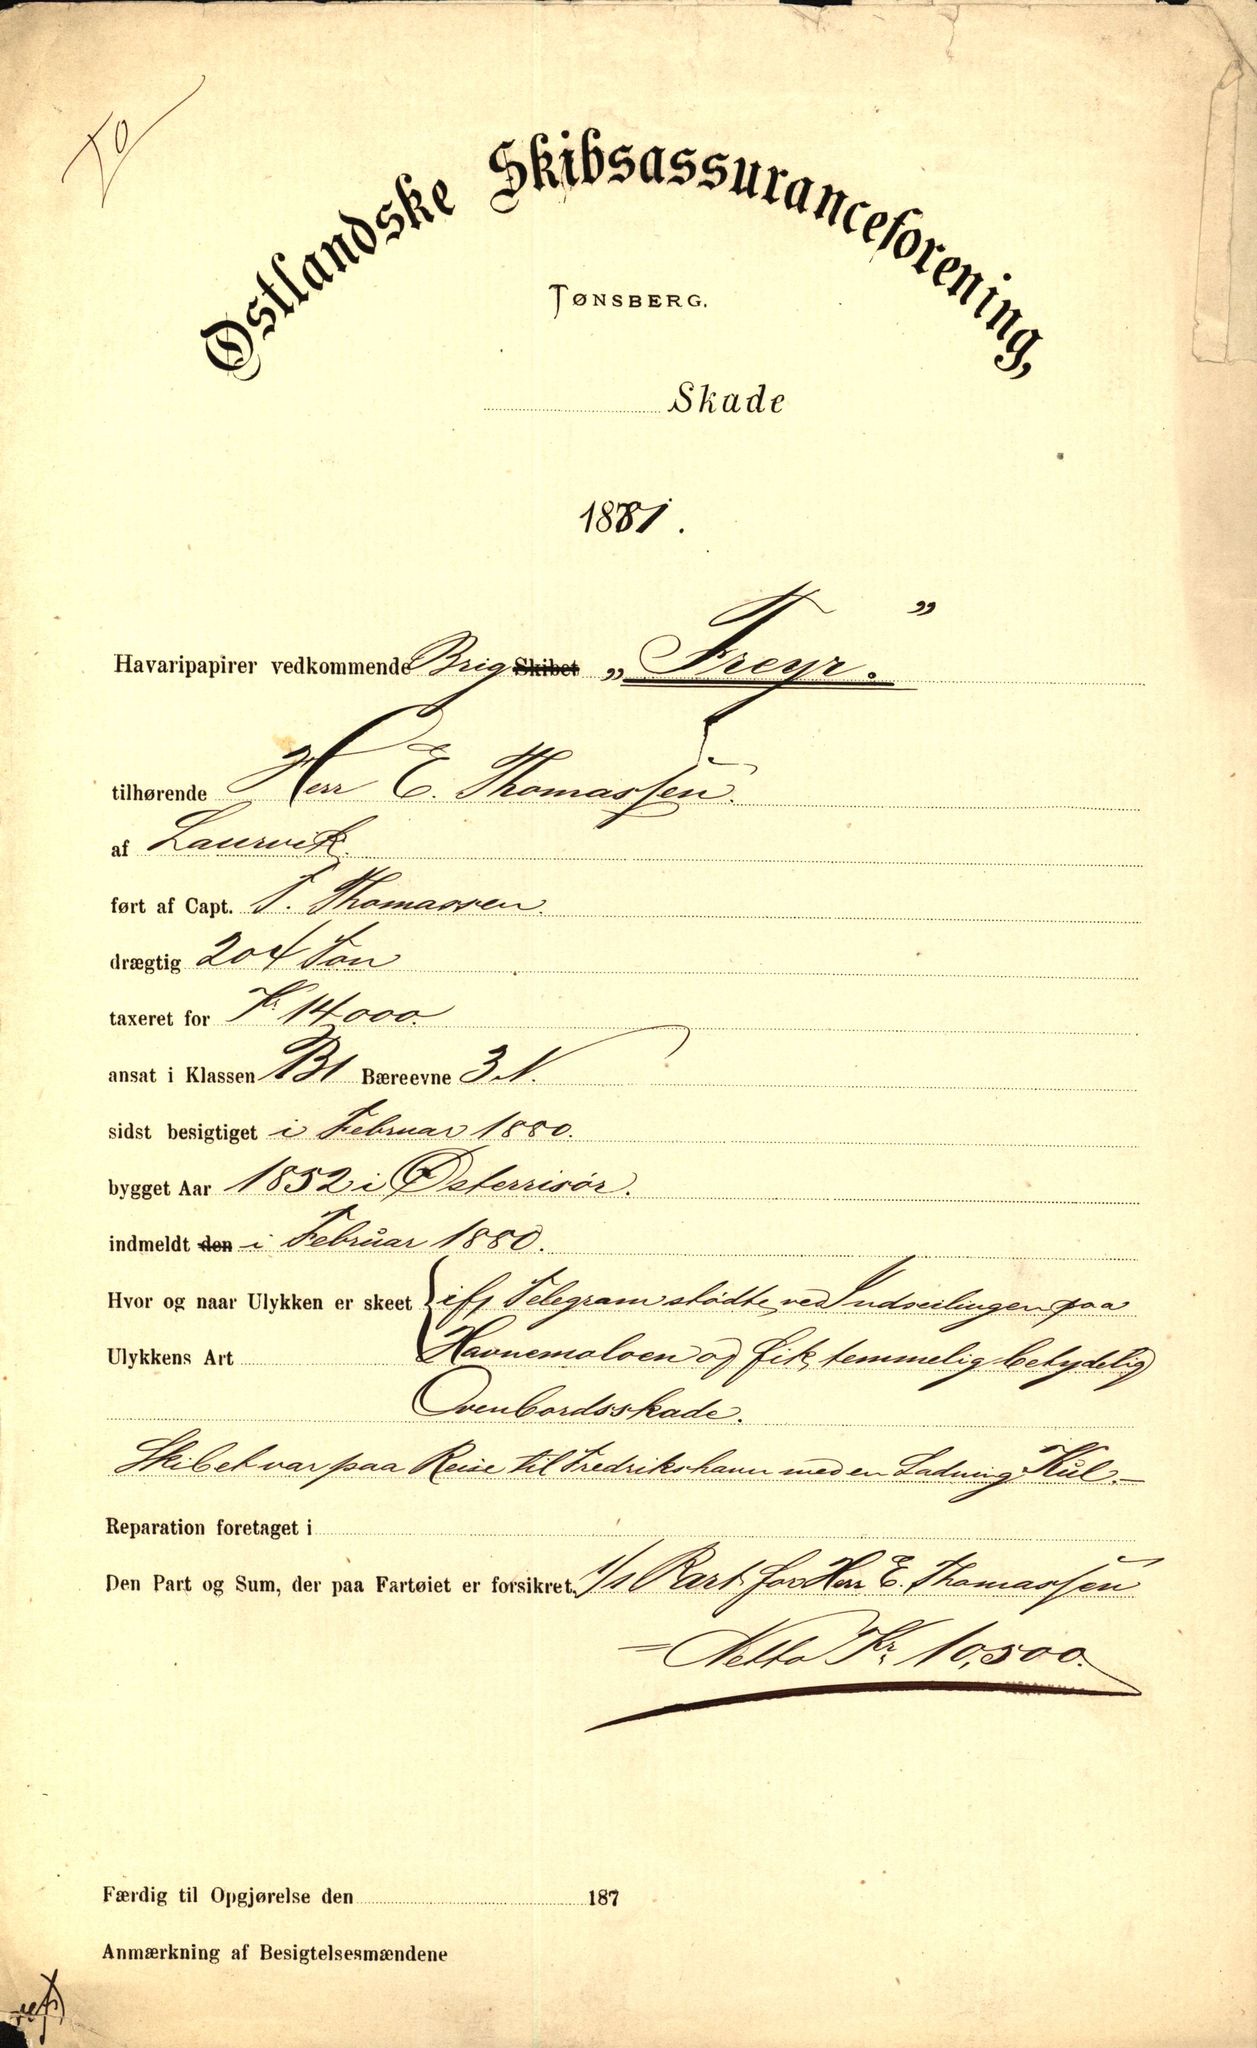 Østlandske Skibsassuranceforening,
TØNSBERG.
Skade
1881.
Havaripapirer vedkommende Brig Skibet „Freyr.”
tilhørende Herr E. Thomassen.
af Laurvik.
ført af Capt. T. Thomassen.
drægtig 204 Ton
taxeret for Kr 14000.
ansat i Klassen B1 Bæreevne 3 N.
sidst besigtiget i Februar 1880.
bygget Aar 1852 i Østerrisør.
indmeldt den i Februar 1880.
Hvor og naar Ulykken er skeet ifl Telegram stödte ved Indseilingen paa
Ulykkens Art Havnemoloen og fik temmelig betydelig
Ovenbordsskade.
Skibet var paa Reise til Fredrikshavn med en Ladning Kul.—
Reparation foretaget i
Den Part og Sum, der paa Fartøiet er forsikret, 1/1 Part for Herr E. Thomassen
= Netto Kr. 10,500.
Færdig til Opgjørelse den 187
Anmærkning af Besigtelsesmændene